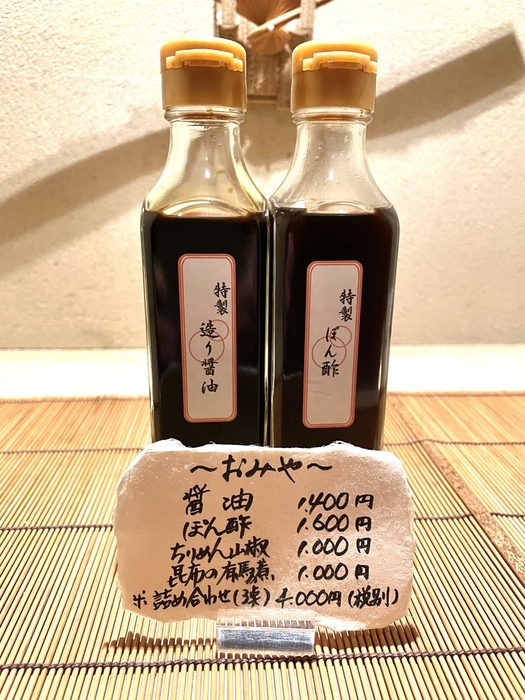 特製
造り醤油
特製
ぽん酢
〜おみや〜
醤油 1.400円
ぽん酢 1.600円
ちりめん山椒 1.000円
昆布の有馬煮 1.000円
※詰め合わせ(3実) 4.000円(税別)